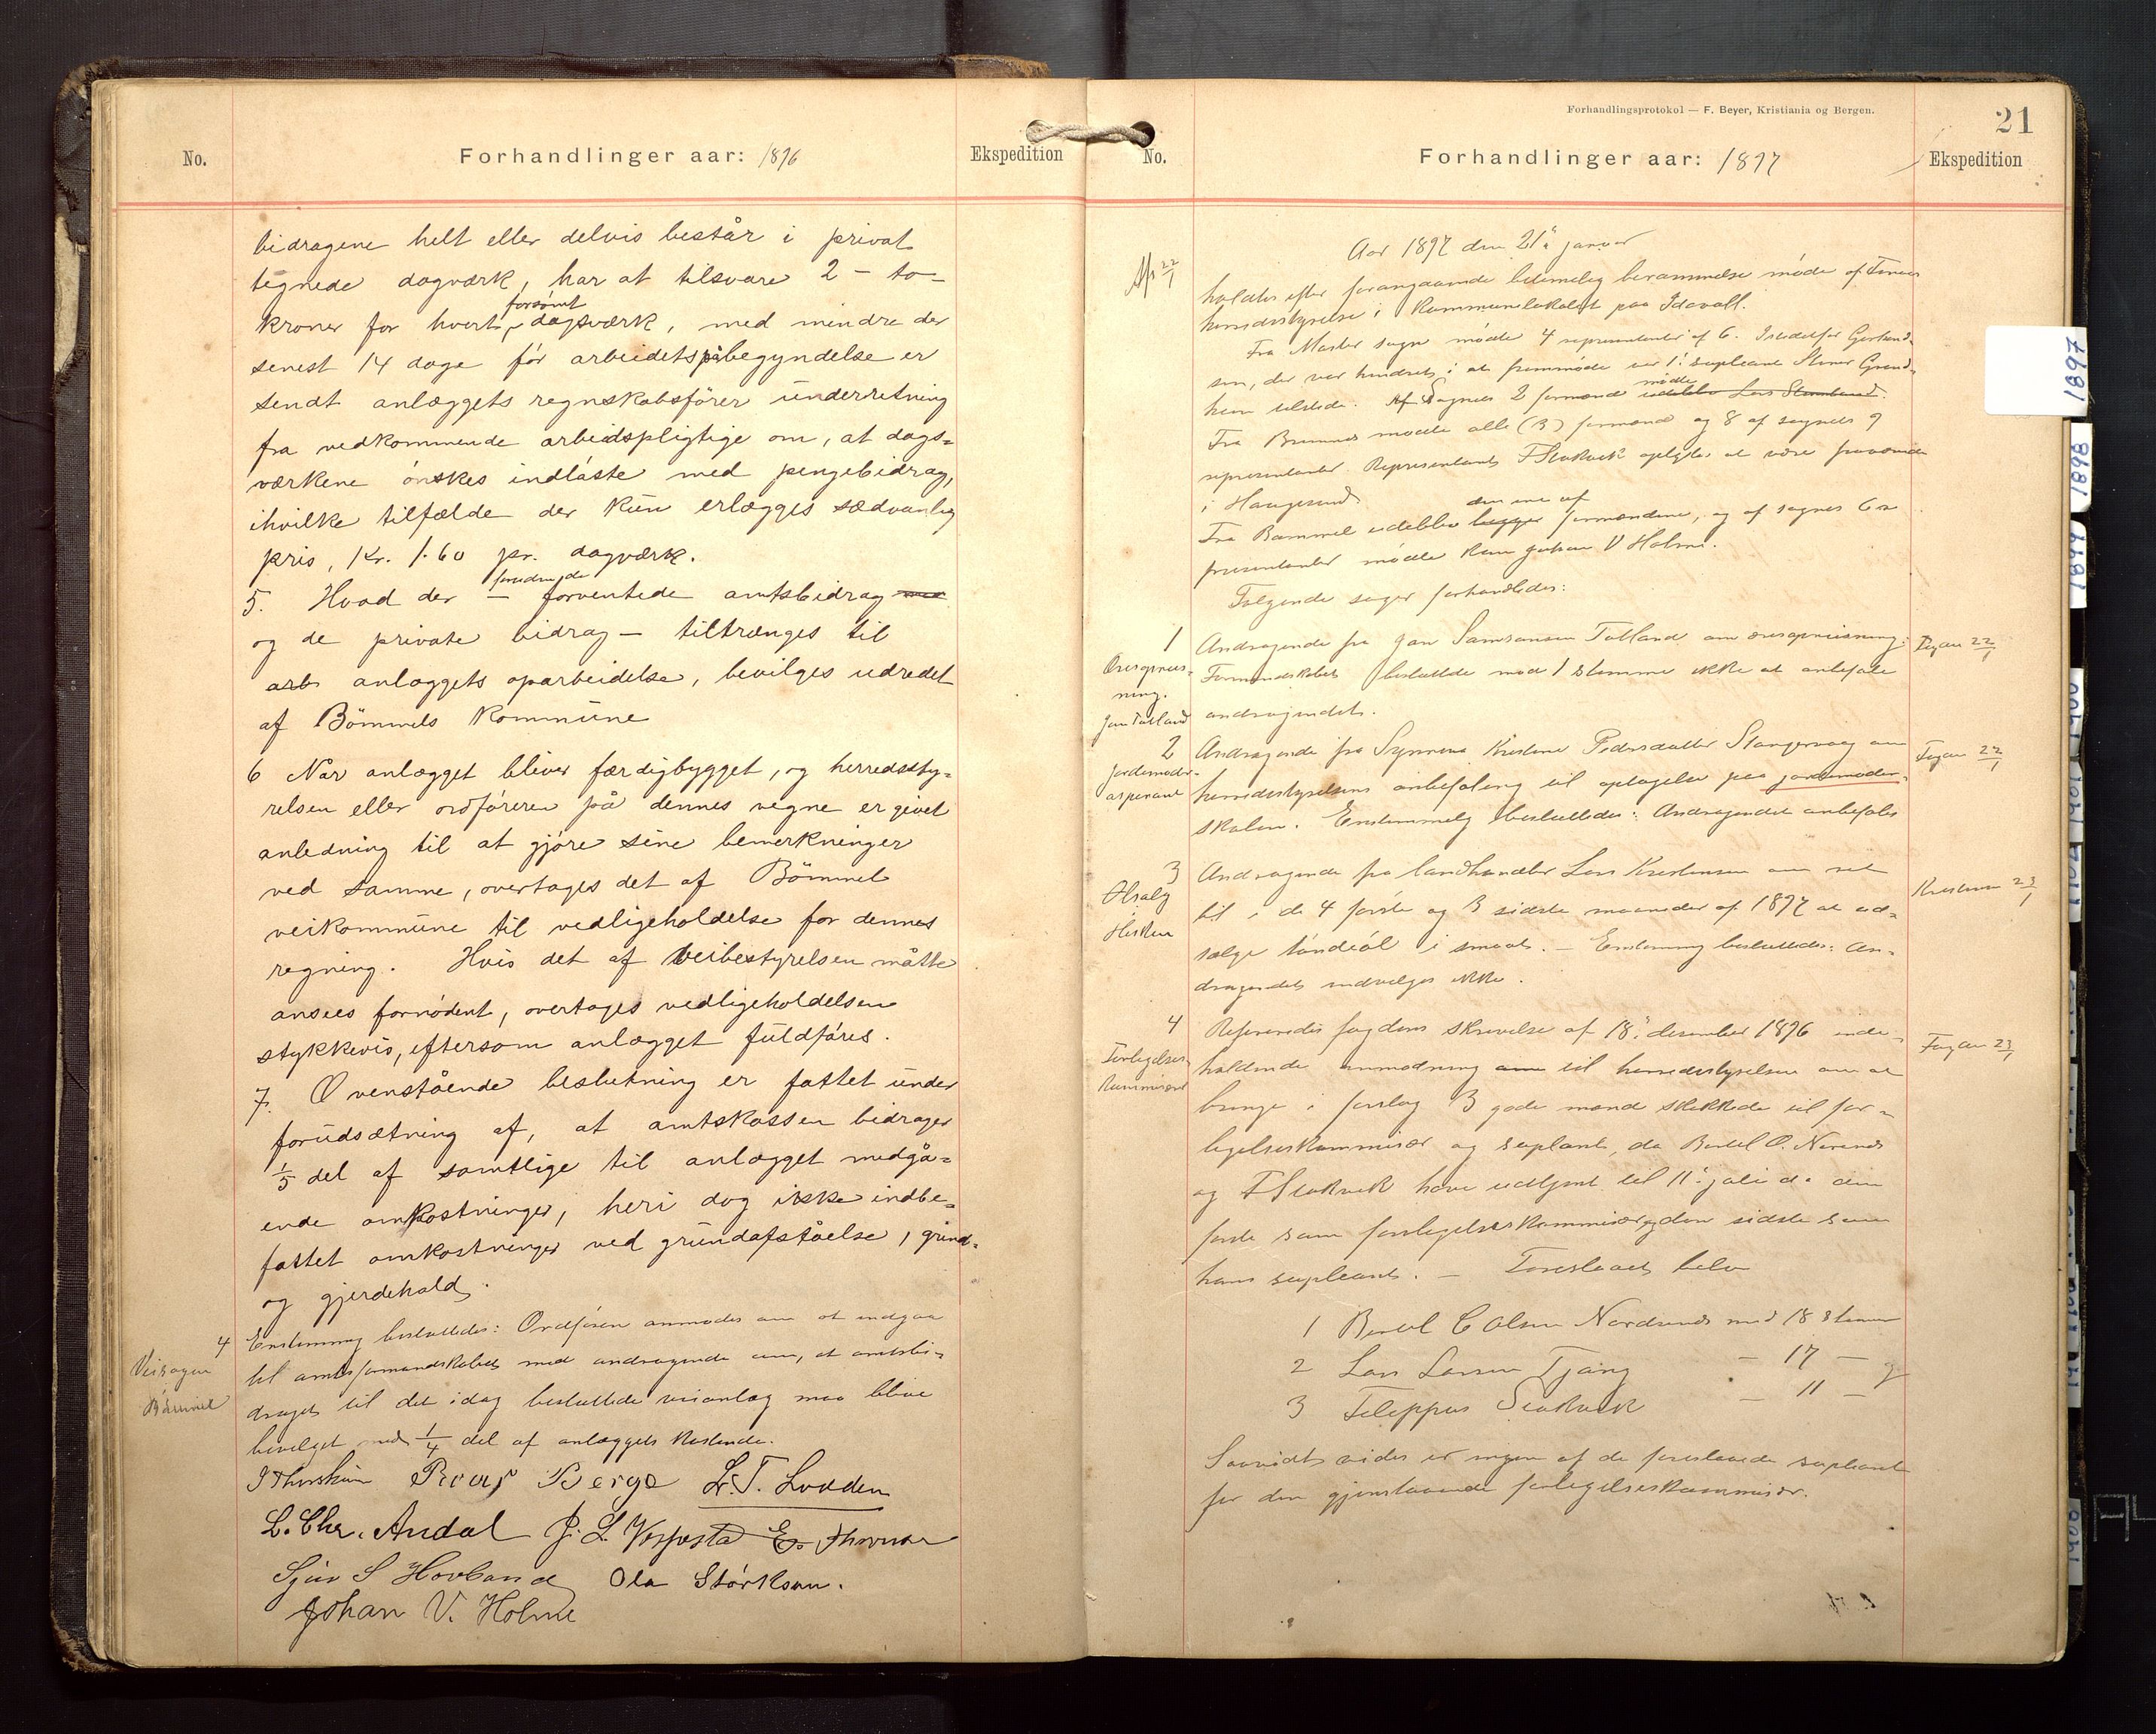 No.
Forhandlinger aar: 1896
Ekspedition
bidragene helt eller delvis består i privat
tegnede dagværk, har at tilsvare 2 – to –
kroner for hvert forsømt dagsværk, med mindre der
senest 14 dage før arbeidets påbegyndelse er
sendt anlæggets regnskabsfører underretning
fra vedkommende arbeidspligtige om, at dags-
værkene ønskes indløste med pengebidrag,
ihvilke tilfælde der kun erlægges sædvanlig
pris, Kr. 1.60 pr. dagværk.
5. Hvad der – forventede amtsbidrag
og de private bidrag – tiltrænges til
anlæggets oparbeidelse, bevilges udredet
af Bömmels kommune
6 Når anlægget bliver færdigbygget, og herredssty-
relsen eller ordføreren på dennes vegne er givet
anledning til at gjøre sine bemerkninger
ved samme, overtages det af Bömmel
veikommune til vedligeholdelse for dennes
regning. Hvis det af veibestyrelsen måtte
ansees fornødent, overtages vedligeholdelsen
stykkevis, eftersom anlægget fuldføres.
7. Ovenstående beslutning er fattet under
forudsætning af, at amtskassen bidrager
1/5 del af samtlige til anlægget medgå-
ende omkostninger, heri dog ikke indbe-
fattet omkostninger ved grundafståelse, grind-
og gjerdehold.
4
Veisagen
Bömmel
Enstemmig besluttedes: Ordføren anmodes om at indgaa
til amtsformandskabet med andragende om, at amtsbi-
draget til det idag besluttede veianlæg maa blive
bevilget med 1/4 del af anlæggets kostende.
Roar Berge L. T. Lodden
L. Chr. Andal
Sjur S Hovland Ola Störksen.
Johan V. Holme
Forhandlingsprotokol — F. Beyer, Kristiania og Bergen.
21
No.
Forhandlinger aar: 1897
Ekspedition
Aar 1897 den 21de januar
22/1
holdtes efter forangaaende betimelig berammelse møde af Finnes
herredsstyrelse i kommunelokalet paa Idavoll.
Fra Moster sogn mødte 4 repræsentanter af 6. Istedetfor
sen, der var hindret i at fremmøde var 1ste supleant
heim tilstede. Sognets 2 formænd mødte
Fra Bremnes mødte alle (3) formænd og 8 af sognets 9
repræsentanter. Repræsentant F Siokvik oplystes at være fraværende
i Haugesund
Fra Bømmel udeblev den ene af formændene, og af sognets 6 re
præsentanter mødte kun Johan V Holme.
Følgende sager forhandledes:
1
Øresopreis-
ning.
Jan Totland
Andragende fra Jan Samsonsen Totland om æresopreisning.
Formandskabet besluttede mod 1 stemme ikke at anbefale
andragendet.
22/1
2
Jordemoder-
aspirant
Andragende fra Synneva Kristine Pedersdatter Stangervaag om
herredsstyrelsens anbefaling til optagelse paa jordemoder-
skolen. Enstemmig besluttedes: Andragendet anbefales
22/1
3
Ølsalg
Hisken
Andragende fra landhandler Lars Kristensen om ret
til i de 4 første og 3 sidste maaneder af 1897 at ud-
sælge tøndeøl i smaat. – Enstemmig besluttedes: An-
dragendet indvilges ikke.
Kristensen 23/1
4
Forligelses-
kommissær
Refereredes fogdens skrivelse af 18de desember 1896 inde-
holdende anmodning til herredsstyrelsen om at
bringe i forslag 3 gode mænd skikkede til for-
ligelseskommisær og supleant, da Bertel O. Norsund
og F Siokvik have udtjent til 11te juli d. a. den
første som forligelseskommisær og den sidste som
hans supleant. – Foreslaaet belv
Fogden 23/1
1 Bertel C Olsen Nordsund med 18 stemmer
2 Lars Larsen Tjong – 17 – og
3 Filippus Siokvik – 11 –
Saavidt vides er ingen af de foreslaaede supleant
for den gjenstaaende forligelseskommisær.
1897
1898
1899
1900
1901
1902
1906